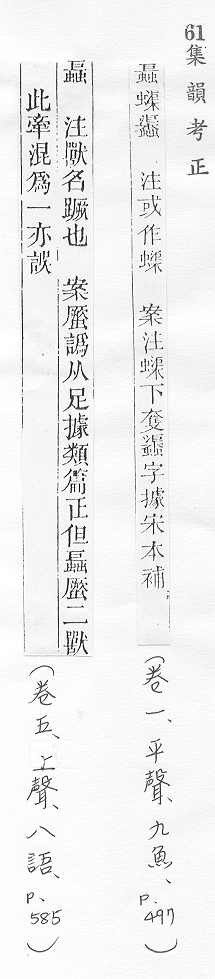 61
集韻考正
注或作 案注 下奪 字據宋本補
(卷一、平聲、九魚、p.497)
注獸名蹶也 案蟨譌从足據類篇正但 蟨二獸
此牽混爲一亦誤
(卷五、上聲、八語、p.585)